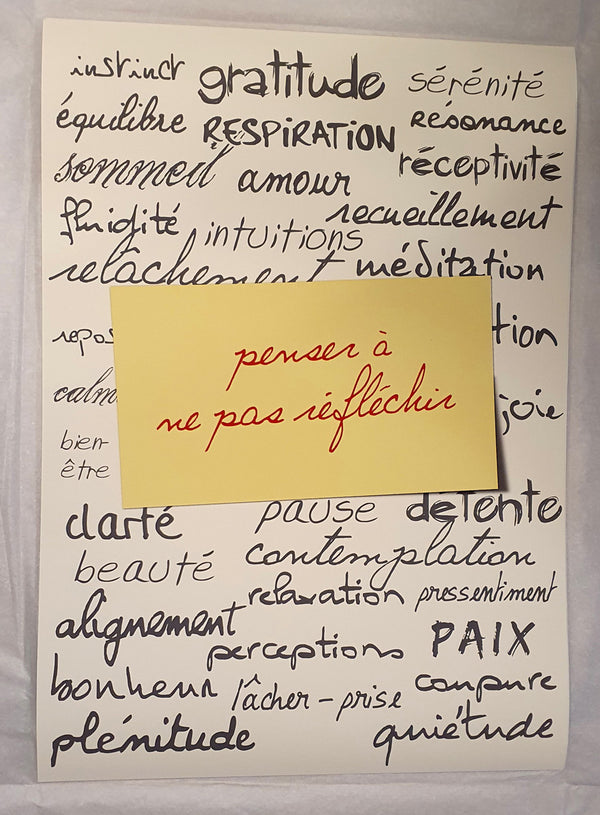 instinct gratitude sérénité
équilibre RESPIRATION résonance
sommeil amour réceptivité
fluidité intuitions recueillement
relâchement méditation
repos tion
penser à
calm
ne pas réfléchir
joie
bien-
être
clarté pause détente
beauté contemplation
relaxation pressentiment
alignement perceptions PAIX
bonheur lâcher-prise coupure
plénitude quiétude